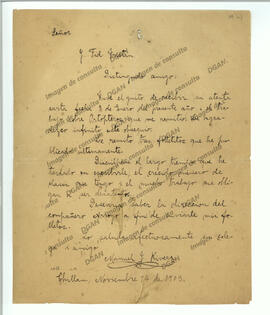 Señor
J. Fid Tristán
Distinguido amigo:
Tuve el gusto de recibir su atenta
carta fechada 3 de Enero del presente año i el tra-
bajo sobre Ortópteros que me remitió. Le agra-
dezco infinito este obsequio.
Le remito dos folletitos que he pu-
blicado últimamente.
Discúlpeme el largo tiempo que he
tardado en escribirle, el crecido número de
clases que tengo i el mucho trabajo me obligan
a ser
Desearía saber la dirección del
compañero Arroyo a fin de enviarle mis fo-
lletos.
Lo saluda afectuosamente su cole-
ga i amigo
Manuel J. Rivera
Chillán, Noviembre 14 de 1903.
Imagen de consulta DGAN.